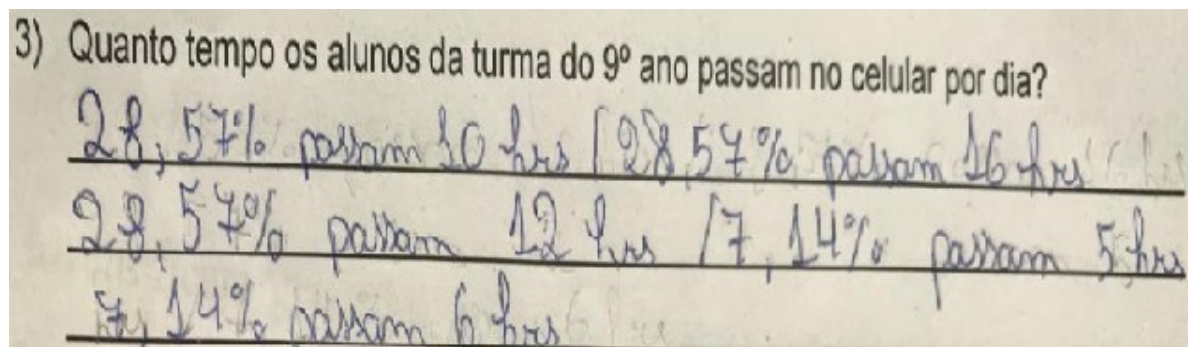 3) Quanto tempo os alunos da turma do 9º ano passam no celular por dia?
28,57% passam 10 hrs / 28,57% passam 16 hrs
28,57% passam 12 hrs / 7,14% passam 5 hrs
7,14% passam 6 hrs